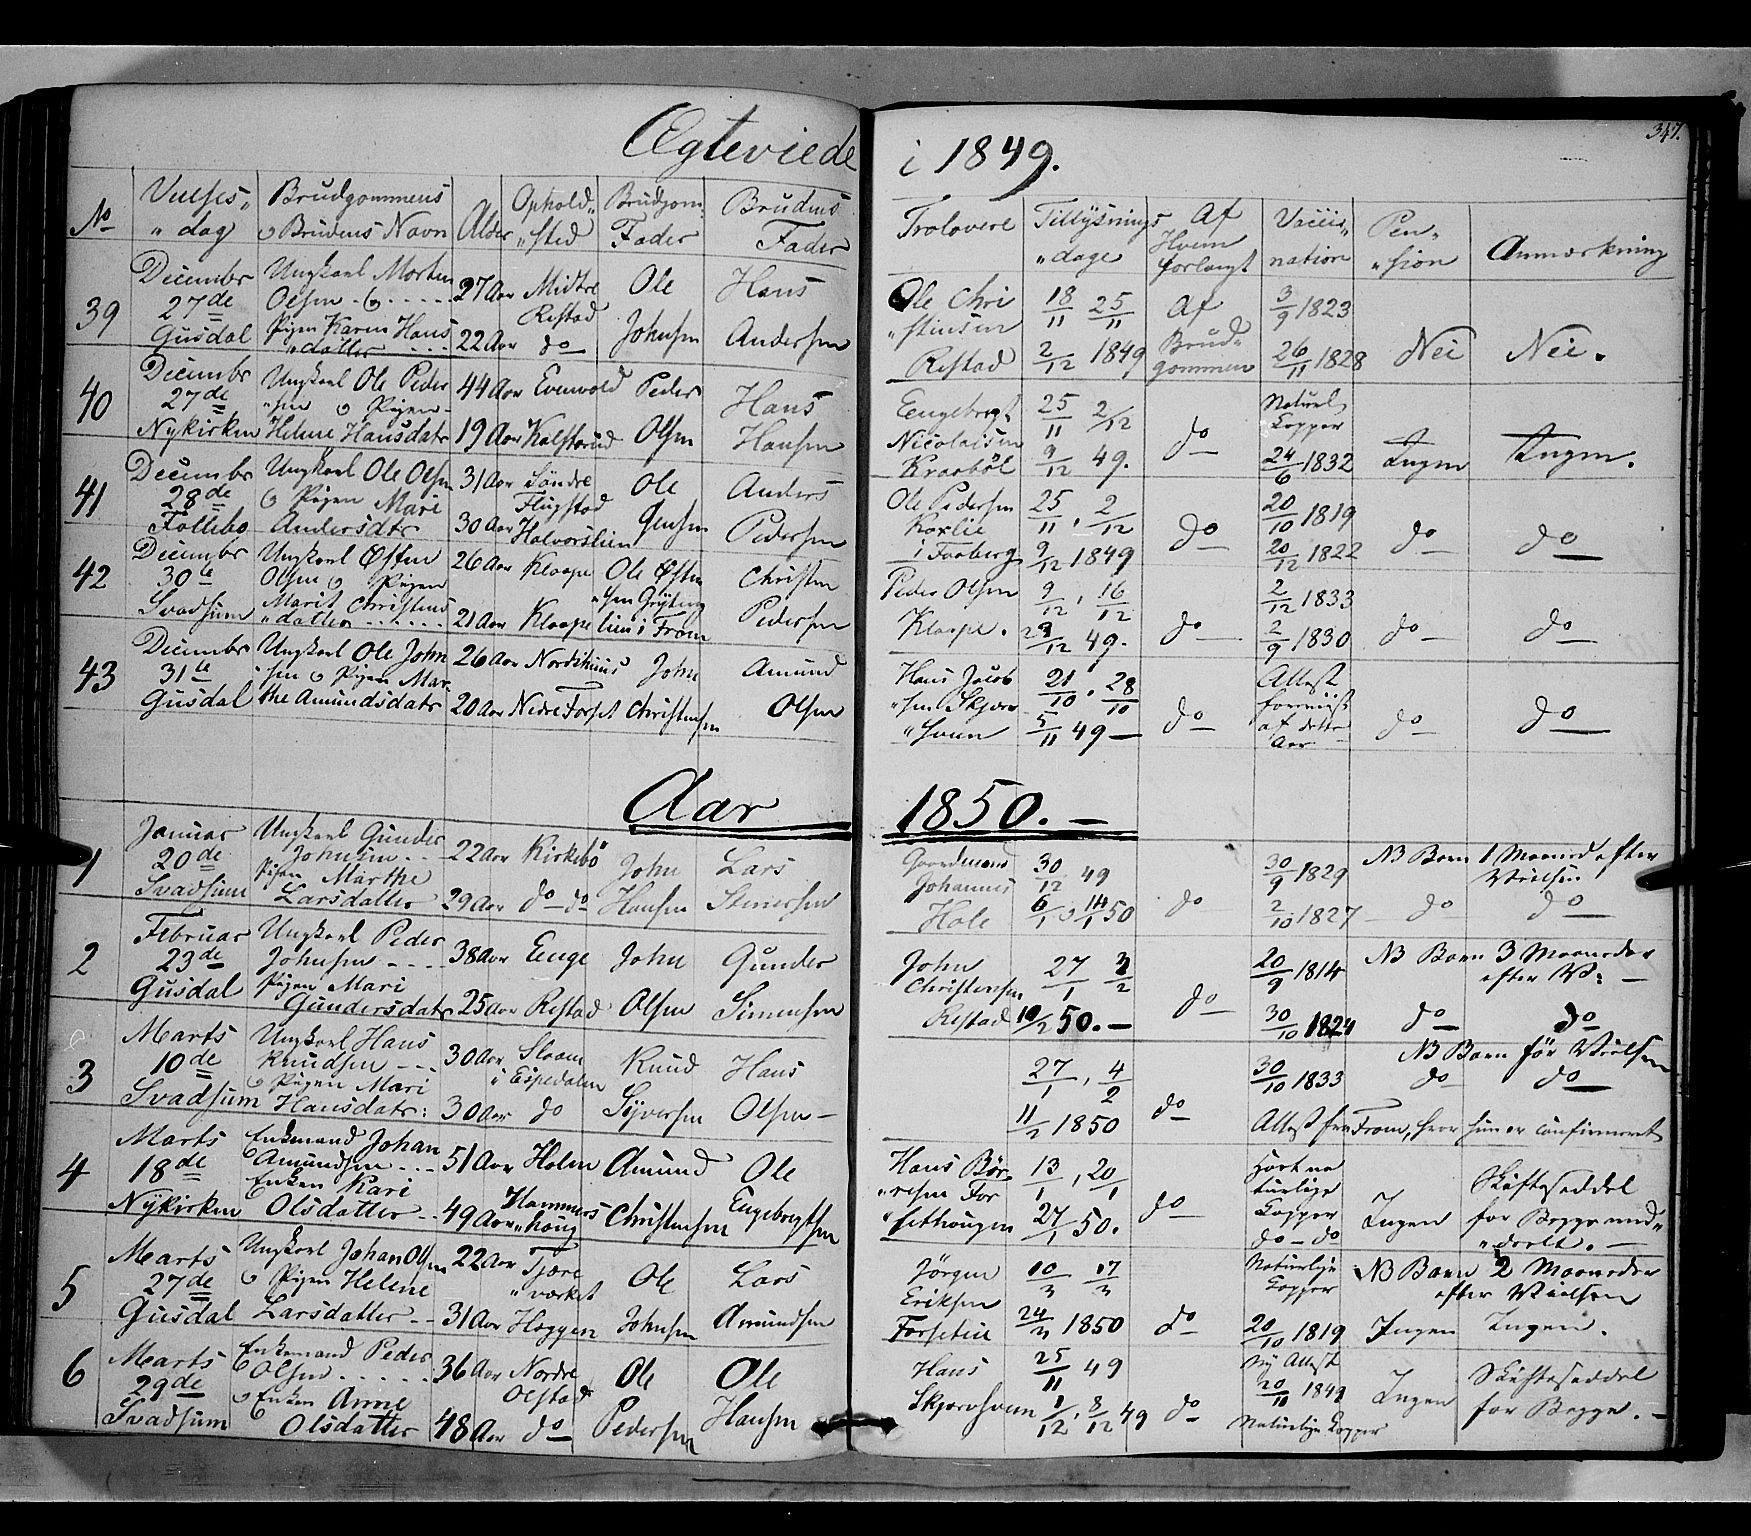 347.
Ægteviede i 1849.
No Vielses„ Brudgommens Alder Ophold„ Brudgom: Brudens Trolovere Tillysnings Af Vacci„ Pen„ Anmærkning
„dag & Brudens Navn „sted Fader Fader „dage Hvem nation „sion
forlangt
39 December Ungkarl Morten 27 Aar Midtre Ole Hans Ole Chri 18/11 25/11 Af 3/9 1823
27de Olsen & Ristad „stiansen Brud„
Gusdal Pigen Karen Hans 22 Aar do Johnsen Andersen Ristad 2/12 1849 gommen 26/11 1828 Nei Nei.
„datter
40 December Ungkarl Ole Peder 44 Aar Evenvold Peder Hans Engebregt 25/11 2/12 Naturl
27de „sen & Pigen Nicolaisen do Kopper
Nykirken Helene Hansdatr 19 Aar Kalstarud Olsen Hansen Kraabøl 9/12 49. 24/6 1832 Ingen Ingen.
41 December Ungkarl Ole Olsen 31 Aar Søndre Ole Anders Ole Pedersen 25/11, 2/12 20/10 1819
28de & Pigen Mari Flugstad do do do
Follebo Andersdtr 30 Aar Halvorslien Jensen Pedersen i Faaberg 9/12 1849 20/12 1822
42 December Ungkarl Østen 26 Aar Klaape Ole Østen Christen Peder Olsen 9/12, 16/12 2/12 1833
30te Olsen & Pigen „sen
Svadsum Marit Christens 21 Aar Klaape lien i Fron Pedersen Klaape. 23/12 49. do 2/9 1830 do do
„datter
43 December Ungkarl Ole John 26 Aar John Amund Hans Jacob 21/10, 28/10 Attest
31te „sen & Pigen Mar „sen Skjæv do do do
Gusdal the Amundsdatr 20 Aar Nedre Forset Christensen Olsen 5/11 49 af dette
Aar
Aar 1850.
1 Januar Ungkarl Gunder 22 Aar Kirkebø John Lars Gaardmand 30/12 49 30/9 1829 NB Barn 1 Maaned efter
20de Johnsen Johannes Vielsen
Svadsum Pigen Marthe 29 Aar do do Hansen Steenersen Hole 6/1 & 14/1 50 do 2/10 1827 do do
Larsdatter
2 Februar Ungkarl Peder 38 Aar Enge John Gunder John 27/1 3/2 20/9 1814 NB Barn 3 Maaneder
23de Johnsen Christensen do efter V:
Gusdal Pigen Mari 25 Aar Ristad Olsen Simensen Ristad 10/2 50. 30/10 1824 do do
Gundersdatr
3 Marts Ungkarl Hans 30 Aar Slaaen Knud Hans 27/1, 4/2 30/10 1833 NB Barn før Vielsen
10de Knudsen i Espedalen do do do
Svadsum & Pigen Mari 30 Aar do Syversen Olsen 11/2 1850 Attest fra Fron, hvor hun er confirmeret
Hansdatr:
4 Marts Enkemand Johan 51 Aar Holen Amund Ole Hans Bør 13/1, 20/1 Havt na Skifteseddel
18de Amundsen „resen For do turlige Ingen for Begge med„
Nykirken & Enken Kari 49 Aar Hammers Christensen Engebregtsen „sethougen 27/1 50. Kopper „deelt.
Olsdatter „houg do do
5 Marts Ungkarl Johan Olsen 22 Aar Tjære Ole Lars Jørgen 10/3 17/3 Naturlige NB Barn 2 Maaneder
27de & Pigen Helene „værket Eriksen Kopper efter Vielsen
Gusdal Larsdatter 31 Aar Heggen Johnsen Amundsen Forsetlie 24/3 1850 do 20/10 1819 Ingen Ingen.
6 Marts Enkemand Peder 36 Aar Nordre Ole Ole Hans 25/11 49 Ny Attest Skifteseddel
29de Olsen Olstad 20/11 1849 Ingen
Svadsum & Enken Anne 48 Aar do Pedersen Hansen Skjævsveen 1/12, 8/12 49 do Naturlige Kopper for Begge.
Olsdatter